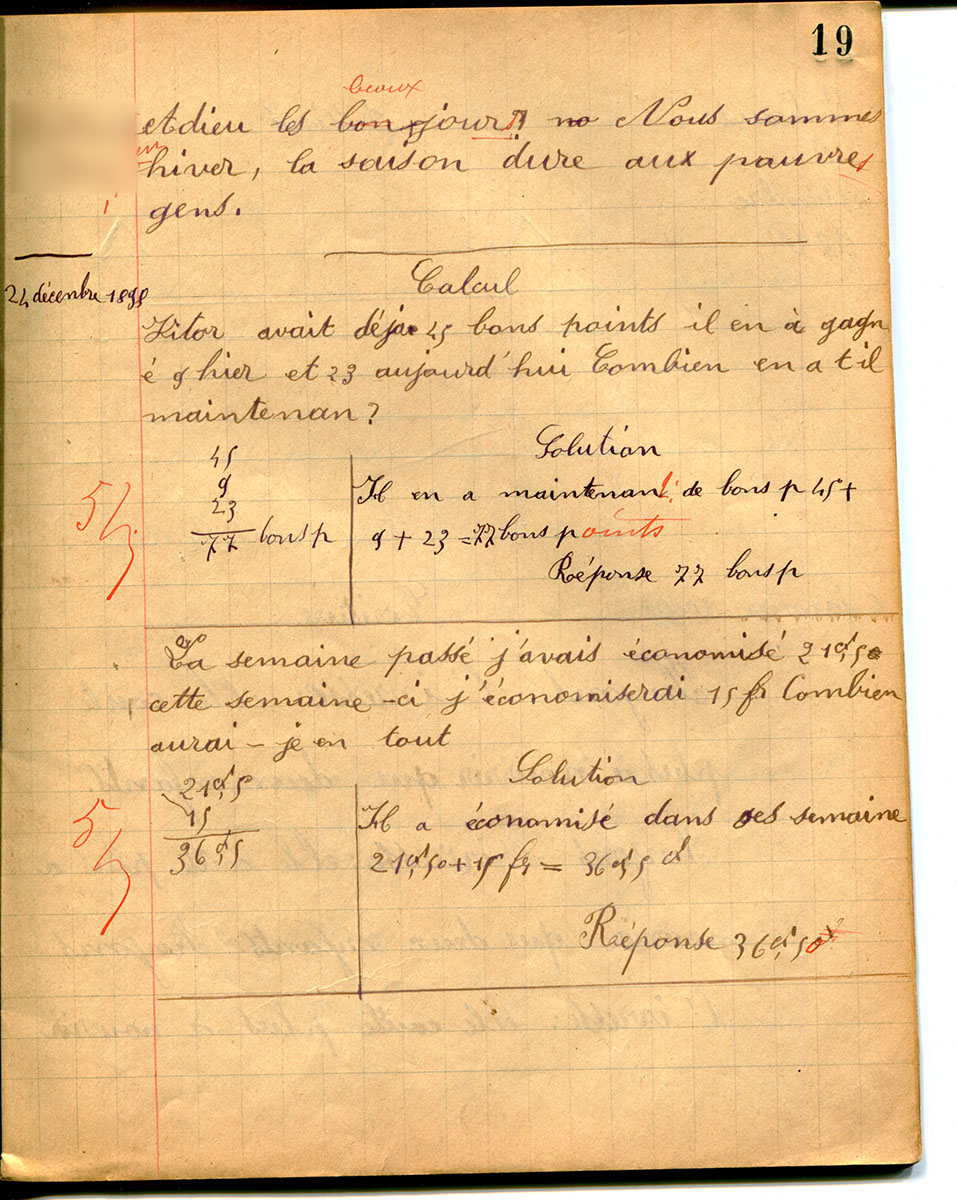 19
beaux
et dieu les bon jours no Nous sommes
en
hiver, la saison dure aux pauvres
gens.
24 décenbre 1898
Calcul
Vitor avait déja 45 bons points il en à gagn
é 9 hier et 23 aujourd'hui Combien en a t il
maintenan?
Solution
45
9
23
77 bons p
Il en a maintenant de bons p 45+
9 + 23 = 77 bons points
Réponse 77 bons p
5/5
La semaine passé j'avais économisé 21f,50
cette semaine-ci j'économiserai 15 fr Combien
aurai-je en tout
Solution
21f,5
15
36f,5
Il a économisé dans ses semaine
21f,50 + 15 fr = 36f,5
Réponse 36f,50
5/5